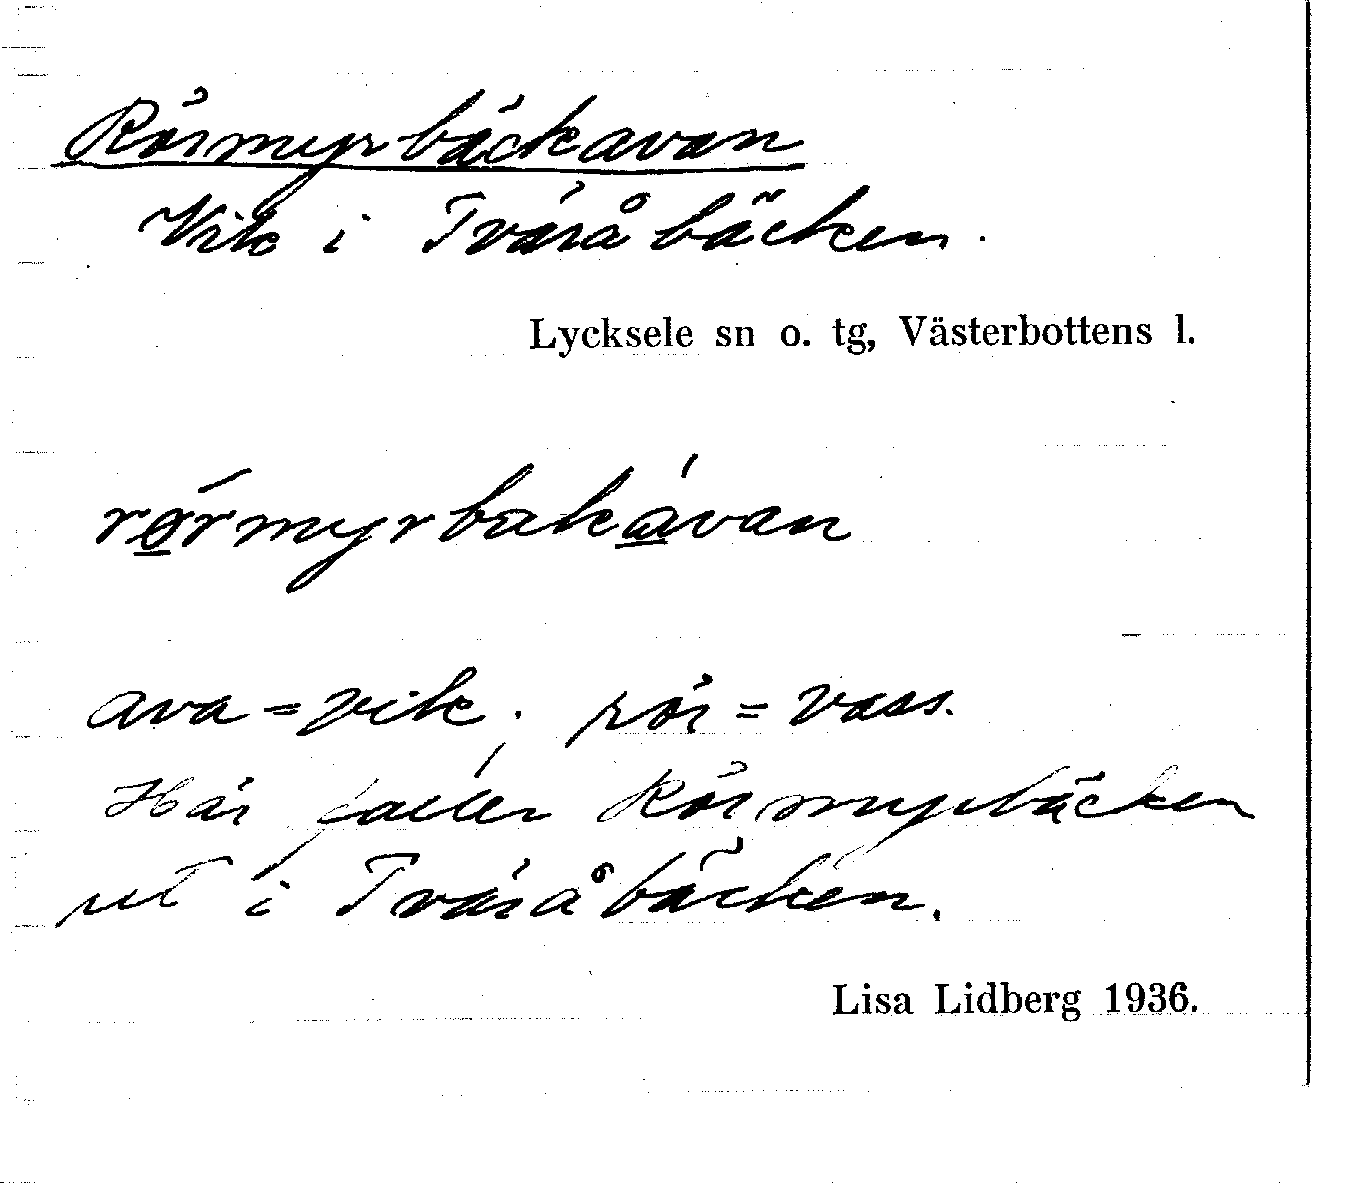 Rörmyrbäckavan
Vik i Tväråbäcken.
Lycksele sn o. tg, Västerbottens l.
rørmyrbakavan
ava = vik. rör = vass.
Här faller Rörmyrbäcken
ut i Tväråbäcken.
Lisa Lidberg 1936.